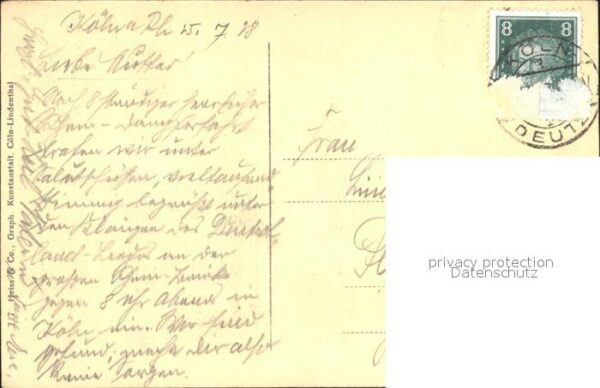 Köln a Rh 25. 7. 28
Liebe Mutter!
Nach 8 stündiger herrlicher
Rhein-Dampferfahrt
trafen wir unter
Salutschüssen, vieltausend
stimmig begrüsst unter
den Klängen des Deutsch-
land-Liedes an der
grossen Rhein-Brücke
gegen 8 Uhr Abends in
Köln ein. Wir sind
gesund, mache Dir also
keine Sorgen.
Heiss & Co., Graph. Kunstanstalt, Cöln-Lindenthal
Frau
8 8
KÖLN
DEUTZ
privacy protection
Datenschutz